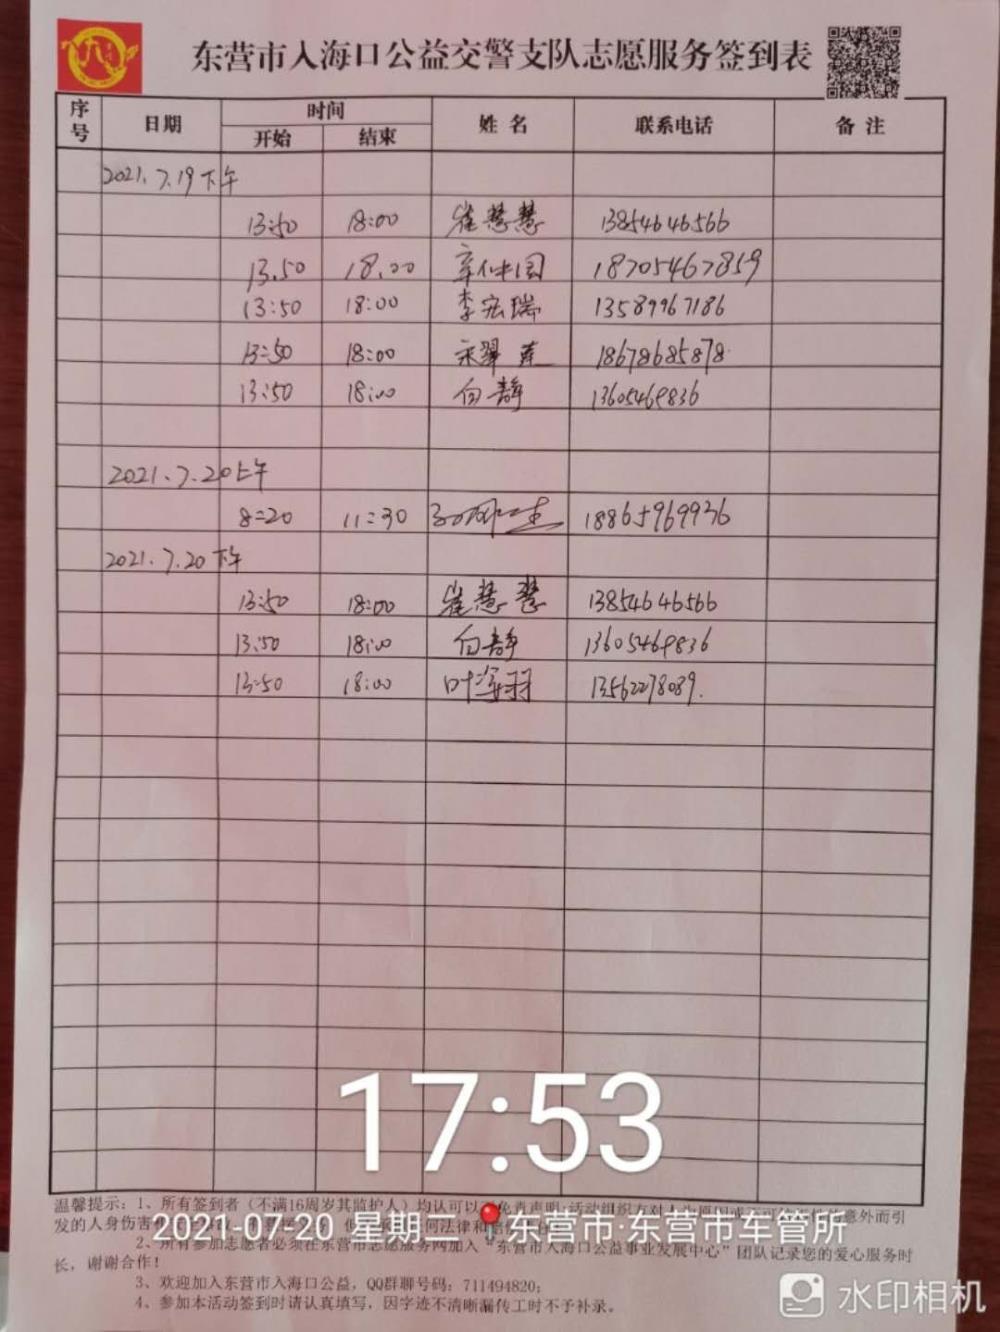 东营市入海口公益交警支队志愿服务签到表
序号 日期 时间 姓名 联系电话 备注
开始 结束
2021.7.19下午
13:50 18:00 崔慧慧 13854646566
13.50 18.00 18705467859
13:50 18:00 李宏瑞 13589967186
13:50 18:00 18678685878
13:50 18:00 白静 13605469836
2021.7.20上午
8:20 11:30 18865969936
2021.7.20下午
13:50 18:00 崔慧慧 13854646566
13:50 18:00 白静 13605469836
13:50 18:00 叶海羽 13562278089.
17:53
温馨提示：1、所有签到者（不满16周岁其监护人）均认可以 免责声明:活动组织方对 意外而引
发的人身伤害 何法律和
2021-07-20 星期二 东营市·东营市车管所
2、所有参加志愿者必须在东营市志愿服务网加入“东营市入海口公益事业发展中心”团队记录您的爱心服务时
长，谢谢合作！
3、欢迎加入东营市入海口公益，QQ群聊号码：711494820;
4、参加本活动签到时请认真填写，因字迹不清晰漏传工时不予补录。
水印相机